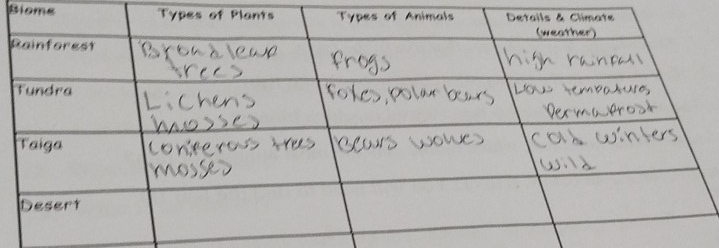 Biome Types of Plants Types of Animals Details & Climate
(weather)
Rainforest Broadleap frogs high rainfall
trees
Tundra Lichens foxes, polar bears Low tempatures
mosses permafrost
Taiga coniferous trees Bears wolves cold winters
mosses wild
Desert